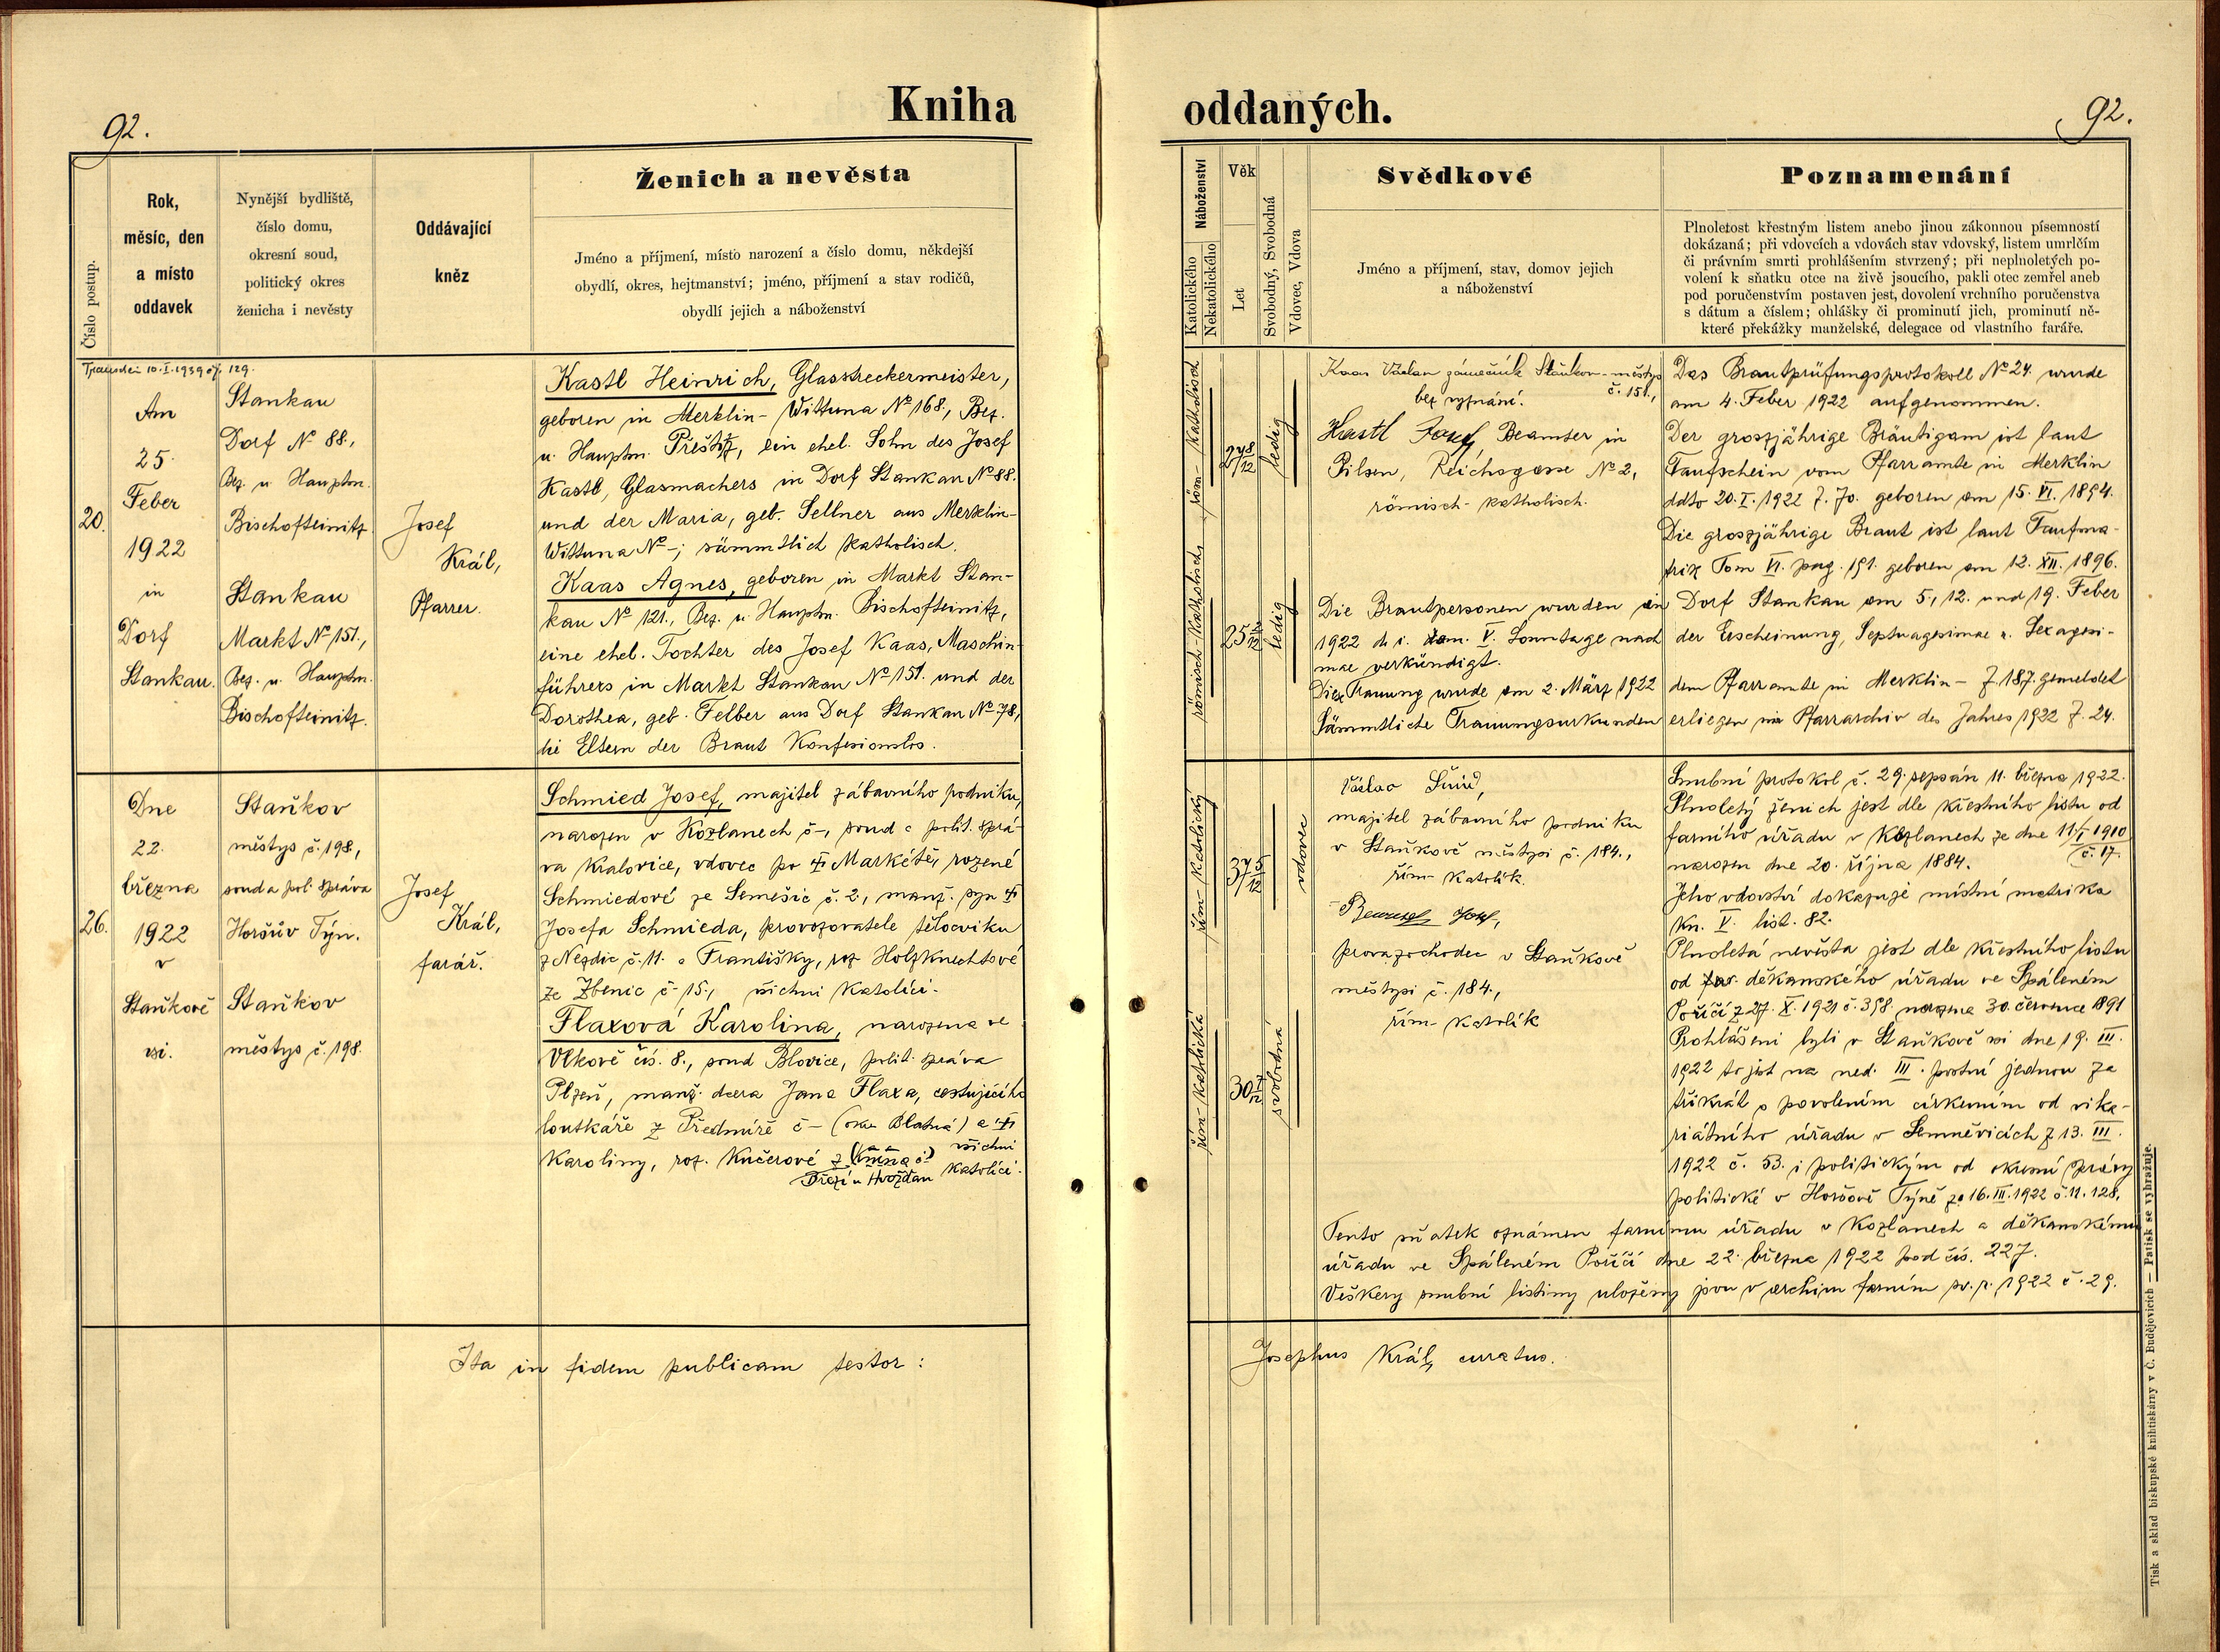 Kniha oddaných.
92.
92.
Číslo postup.
Rok,
měsíc, den
a místo
oddavek
Nynější bydliště,
číslo domu,
okresní soud,
politický okres
ženicha i nevěsty
Oddávající
kněz
Ženich a nevěsta
Jméno a příjmení, místo narození a číslo domu, někdejší
obydlí, okres, hejtmanství; jméno, příjmení a stav rodičů,
obydlí jejich a náboženství
Náboženství
Katolického
Nekatolického
Věk
Let
Svobodný, Svobodná
Vdovec, Vdova
Svědkové
Jméno a příjmení, stav, domov jejich
a náboženství
Poznamenání
Plnoletost křestným listem anebo jinou zákonnou písemností
dokázaná; při vdovcích a vdovách stav vdovský, listem umrlčím
či právním smrti prohlášením stvrzený; při neplnoletých po-
volení k sňatku otce na živě jsoucího, pakli otec zemřel aneb
pod poručenstvím postaven jest, dovolení vrchního poručenstva
s dátum a číslem; ohlášky či prominutí jich, prominutí ně-
které překážky manželské, delegace od vlastního faráře.
10. I. 1939 129.
20.
Am
25.
Feber
1922
in
Dorf
Stankau.
Stankau
Dorf № 88.,
Bez. u. Hauptm.
Bischofteinitz
Stankau
Markt № 151.,
Bez. u. Hauptm.
Bischofteinitz.
Josef
Král,
Pfarrer.
Kastl Heinrich, Glasstreckermeister,
geboren in Merklin-Wittuna № 168., Bez.
u. Hauptm. Přeštitz, ein ehel. Sohn des Josef
Kastl, Glasmachers in Dorf Stankau № 88.
und der Maria, geb. Sellner aus Merklin-
Wittuna № -; sämmtlich katholisch.
Kaas Agnes, geboren in Markt Stan-
kau № 121., Bez. u. Hauptm. Bischofteinitz,
eine ehel. Tochter des Josef Kaas, Maschin-
führers in Markt Stankau № 151. und der
Dorothea, geb. Felber aus Dorf Stankau № 78.,
die Eltern der Braut Konfesionslos.
röm-katholisch
römisch-katholisch
27 8/12
25 2/12
ledig
ledig
Kaas Václav zámečník Staňkov-městys
č. 151.,
bez vyznání.
Kastl Josef, Beamter in
Pilsen, Reichsgasse № 2,
römisch-katholisch.
Das Brautprüfungsprotokoll № 24. wurde
am 4. Feber 1922 aufgenommen.
Der groszjährige Bräutigam ist laut
Taufschein vom Pfarramte in Merklin
ddto 20. I. 1922 Z. 70. geboren am 15. VI. 1894.
Die groszjährige Braut ist laut Taufma-
trix Tom VI. pag. 191. geboren am 12. XII. 1896.
Die Brautpersonen wurden in Dorf Stankau am 5., 12. und 19. Feber
1922 d. i. V. Sonntage nach der Erscheinung, Septuagesimae u. Sexagesi-
mae verkündigt.
Diese Trauung wurde am 2. März 1922 dem Pfarramte in Merklin - Z. 187. gemeldet
Sämmtliche Trauungsurkunden erliegen im Pfarrarchiv des Jahres 1922 Z. 24.
26.
Dne
22.
března
1922
v
Staňkově
vsi.
Staňkov
městys č. 198,
soud a pol. správa
Horšův Týn.
Staňkov
městys č. 198.
Josef
Král,
farář.
Schmied Josef, majitel zábavního podniku,
narozen v Kozlanech č-, soud a polit. sprá-
va Kralovice, vdovec po † Markétě, rozené
Schmiedové ze Semešic č. 2, manž. syn †
Josefa Schmieda, provozovatele tělocviku
z Nezdic č. 11. a Františky, roz. Holzknechtové
ze Zbenic č 15., všichni katolíci.
Flaxová Karolina, narozena ve
Vlkově čís. 8., soud Blovice, polit. správa
Plzeň, manž. dcera Jana Flaxa, cestujícího
loutkáře z Předmíře č - (okr. Blatná) a †
Karoliny, roz. Kučerové z všichni
Březí u Hvožďan katolíci.
řím-katolický
řím-katolická
37 5/12
30 7/12
vdovec
svobodná
Václav Šmíd,
majitel zábavního podniku
v Staňkově městysi č. 184.,
řím-katolík.
Josef,
provazochodec v Staňkově
městysi č. 184.,
řím-katolík
Snubní protokol č. 29. sepsán 11. března 1922.
Plnoletý ženich jest dle křestního listu od
farního úřadu v Kozlanech ze dne 11/I 1910
č. 17.
narozen dne 20. října 1884.
Jeho vdovství dokazuje místní matrika
kn. V. list. 82.
Plnoletá nevěsta jest dle křestního listu
od děkanského úřadu ve Spáleném
Poříčí z 27. X. 1921 č. 358 narozena 30. července 1891
Prohlášeni byli v Staňkově vsi dne 19. III.
1922 to jest na ned. III. postní jednou za
třikrát s povolením církevním od vika-
riátního úřadu v Semněvicích z 13. III.
1922 č. 53. i politickým od okresní správy
politické v Horšově Týně ze 16. III. 1922 č. 11.128.
Tento sňatek oznámen farnímu úřadu v Kozlanech a děkanskému
úřadu ve Spáleném Poříčí dne 22. března 1922 pod čís. 227.
Veškery snubní listiny uloženy jsou v archivu farním sv. r. 1922 č. 29.
Ita in fidem publicam testor: Josephus Král, curatus.
Tisk a sklad biskupské knihtiskárny v Č. Budějovicích — Patisk se vyhražuje.